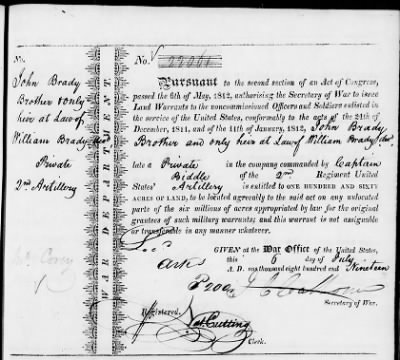 No.
John Brady
Brother & only
heir at Law of
William Brady
Private
2nd Artillery
WAR DEPARTMENT.
No. 22061
Pursuant to the second section of an Act of Congress,
passed the 6th of May, 1812, authorising the Secretary of War to issue
Land Warrants to the noncommissioned Officers and Soldiers enlisted
in the service of the United States, conformably to the acts of the 24th of
December, 1811, and of the 11th of January, 1812, John Brady
Brother and only heir at Law of William Brady
late a Private in the company commanded by Captain
Biddle of the 2nd Regiment United
States' Artillery is entitled to ONE HUNDRED AND SIXTY
ACRES OF LAND, to be located agreeably to the said act on any unlocated
parts of the six millions of acres appropriated by law for the original
grantees of such military warrants; and this warrant is not assignable
or transferable in any manner whatever.
GIVEN at the War Office of the United States,
this 6 day of July
A. D. one thousand eight hundred and Nineteen
Ark
J C Calhoun
Secretary of War.
Registered,
Nat Cutting
Clerk.